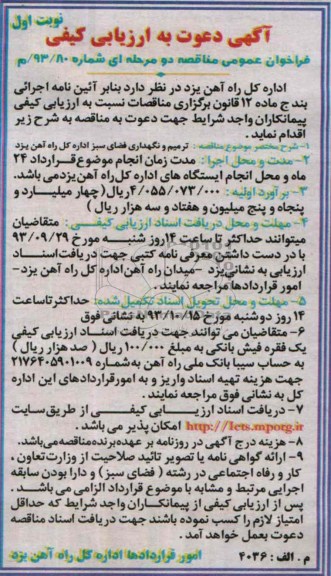 نوبت اول
آگهی دعوت به ارزیابی کیفی
فراخوان عمومی مناقصه دو مرحله ای شماره ۹۳/۸۰/م
اداره کل راه آهن یزد در نظر دارد بنابر آئین نامه اجرائی
بند ج ماده ۱۲ قانون برگزاری مناقصات نسبت به ارزیابی کیفی
پیمانکاران واجد شرایط جهت دعوت به مناقصه به شرح زیر
اقدام نماید .
۱- شرح مختصر موضوع مناقصه : ترمیم و نگهداری فضای سبز اداره کل راه آهن یزد
۲- مدت و محل اجرا : مدت زمان انجام موضوع قرارداد ۲۴
ماه و محل انجام ایستگاه های اداره کل راه آهن یزد می باشد.
۳- برآورد اولیه : ۴/۰۵۵/۰۷۳/۰۰۰ ریال ( چهار میلیارد و
پنجاه و پنج میلیون و هفتاد و سه هزار ریال )
۴- مهلت و محل دریافت اسناد ارزیابی کیفی : متقاضیان
میتوانند حداکثر تا ساعت ۱۴ روز شنبه مورخ ۹۳/۰۹/۲۹
با در دست داشتن معرفی نامه کتبی جهت دریافت اسناد
ارزیابی به نشانی یزد - میدان راه آهن اداره کل راه آهن یزد-
امور قراردادها مراجعه نمایند .
۵- مهلت و محل تحویل اسناد تکمیل شده: حداکثر تا ساعت
۱۴ روز دوشنبه مورخ ۹۳/۱۰/۱۵ به نشانی فوق
۶- متقاضیان می توانند جهت دریافت اسناد ارزیابی کیفی
یک فقره فیش بانکی به مبلغ ۱۰۰/۰۰۰ ریال ( صد هزار ریال )
به حساب سیبا بانک ملی راه آهن به شماره ۲۱۷۶۴۰۵۹۰۱۰۰۹
جهت هزینه تهیه اسناد واریز و به امور قراردادهای این اداره
کل به نشانی فوق مراجعه نمایند .
۷- دریافت اسناد ارزیابی کیفی از طریق سایت
http://Iets.mporg.ir امکان پذیر می باشد .
۸- هزینه درج آگهی در روزنامه بر عهده برنده مناقصه می باشد.
۹- ارائه گواهی نامه یا تصویر تائید صلاحیت از وزارت تعاون ،
کار و رفاه اجتماعی در رشته ( فضای سبز ) و دارا بودن سابقه
اجرایی مرتبط و مشابه با موضوع قرارداد الزامی می باشد .
پس از ارزیابی کیفی از پیمانکاران واجد شرایط که حداقل
امتیاز لازم را کسب نموده باشند جهت دریافت اسناد مناقصه
دعوت بعمل خواهد آمد .
م . الف : ۴۰۳۶ امور قراردادها اداره کل راه آهن یزد